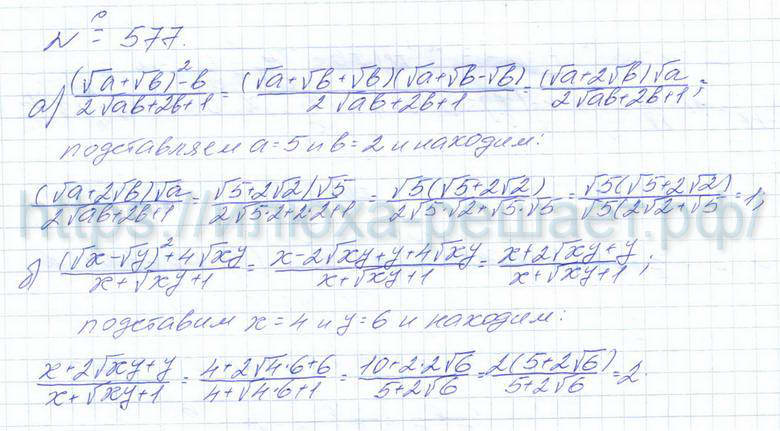 № 577.
а) ((√a+√b)²-b)/(2√ab+2b+1) = ((√a+√b+√b)(√a+√b-√b))/(2√ab+2b+1) = ((√a+2√b)√a)/(2√ab+2b+1);
подставляем a=5 и b=2 и находим:
((√a+2√b)√a)/(2√ab+2b+1) = (√5+2√2)√5/(2√5·2+2·2+1) = (√5(√5+2√2))/(2√5·√2+√5·√5) = (√5(√5+2√2))/(√5(2√2+√5) = 1;
https://плюха-решает.рф/
б) ((√x-√y)²+4√xy)/(x+√xy+1) = (x-2√xy+y+4√xy)/(x+√xy+1) = (x+2√xy+y)/(x+√xy+1);
подставим x=4 и y=6 и находим:
(x+2√xy+y)/(x+√xy+1) = (4+2√4·6+6)/(4+√4·6+1) = (10+2·2√6)/(5+2√6) = (2(5+2√6))/(5+2√6) = 2.